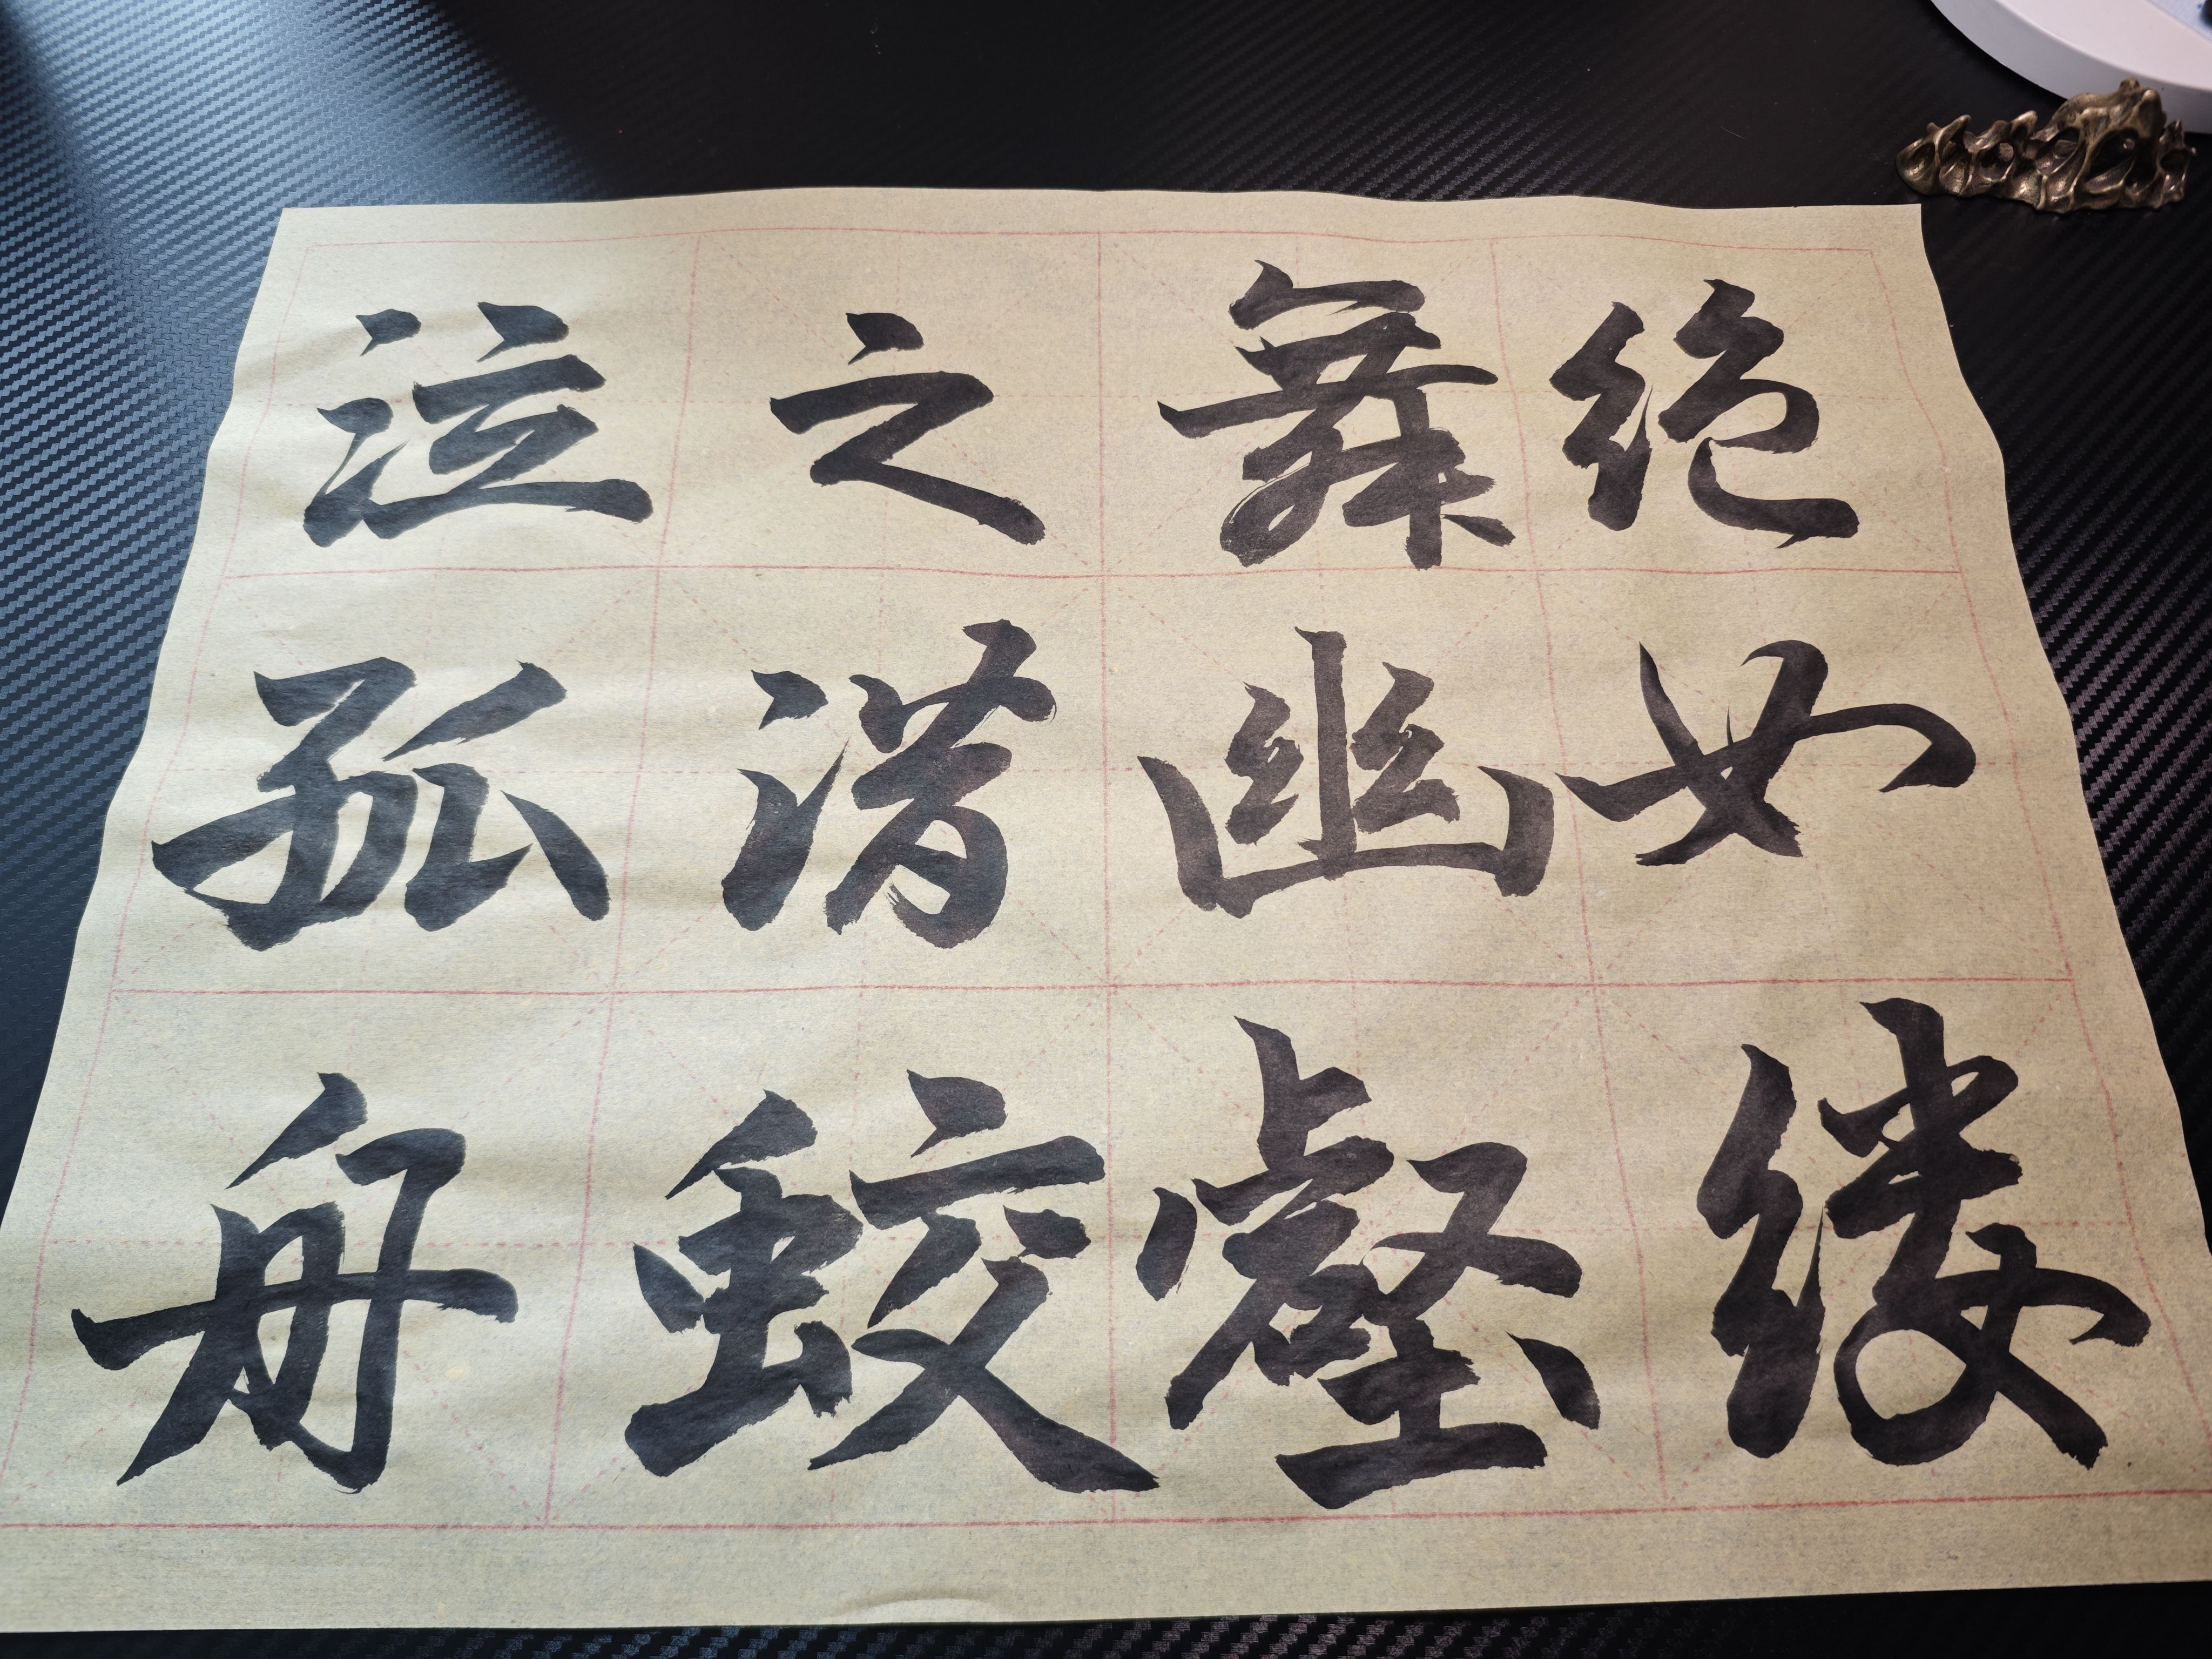 绝如缕
舞幽壑
之潜蛟
泣孤舟